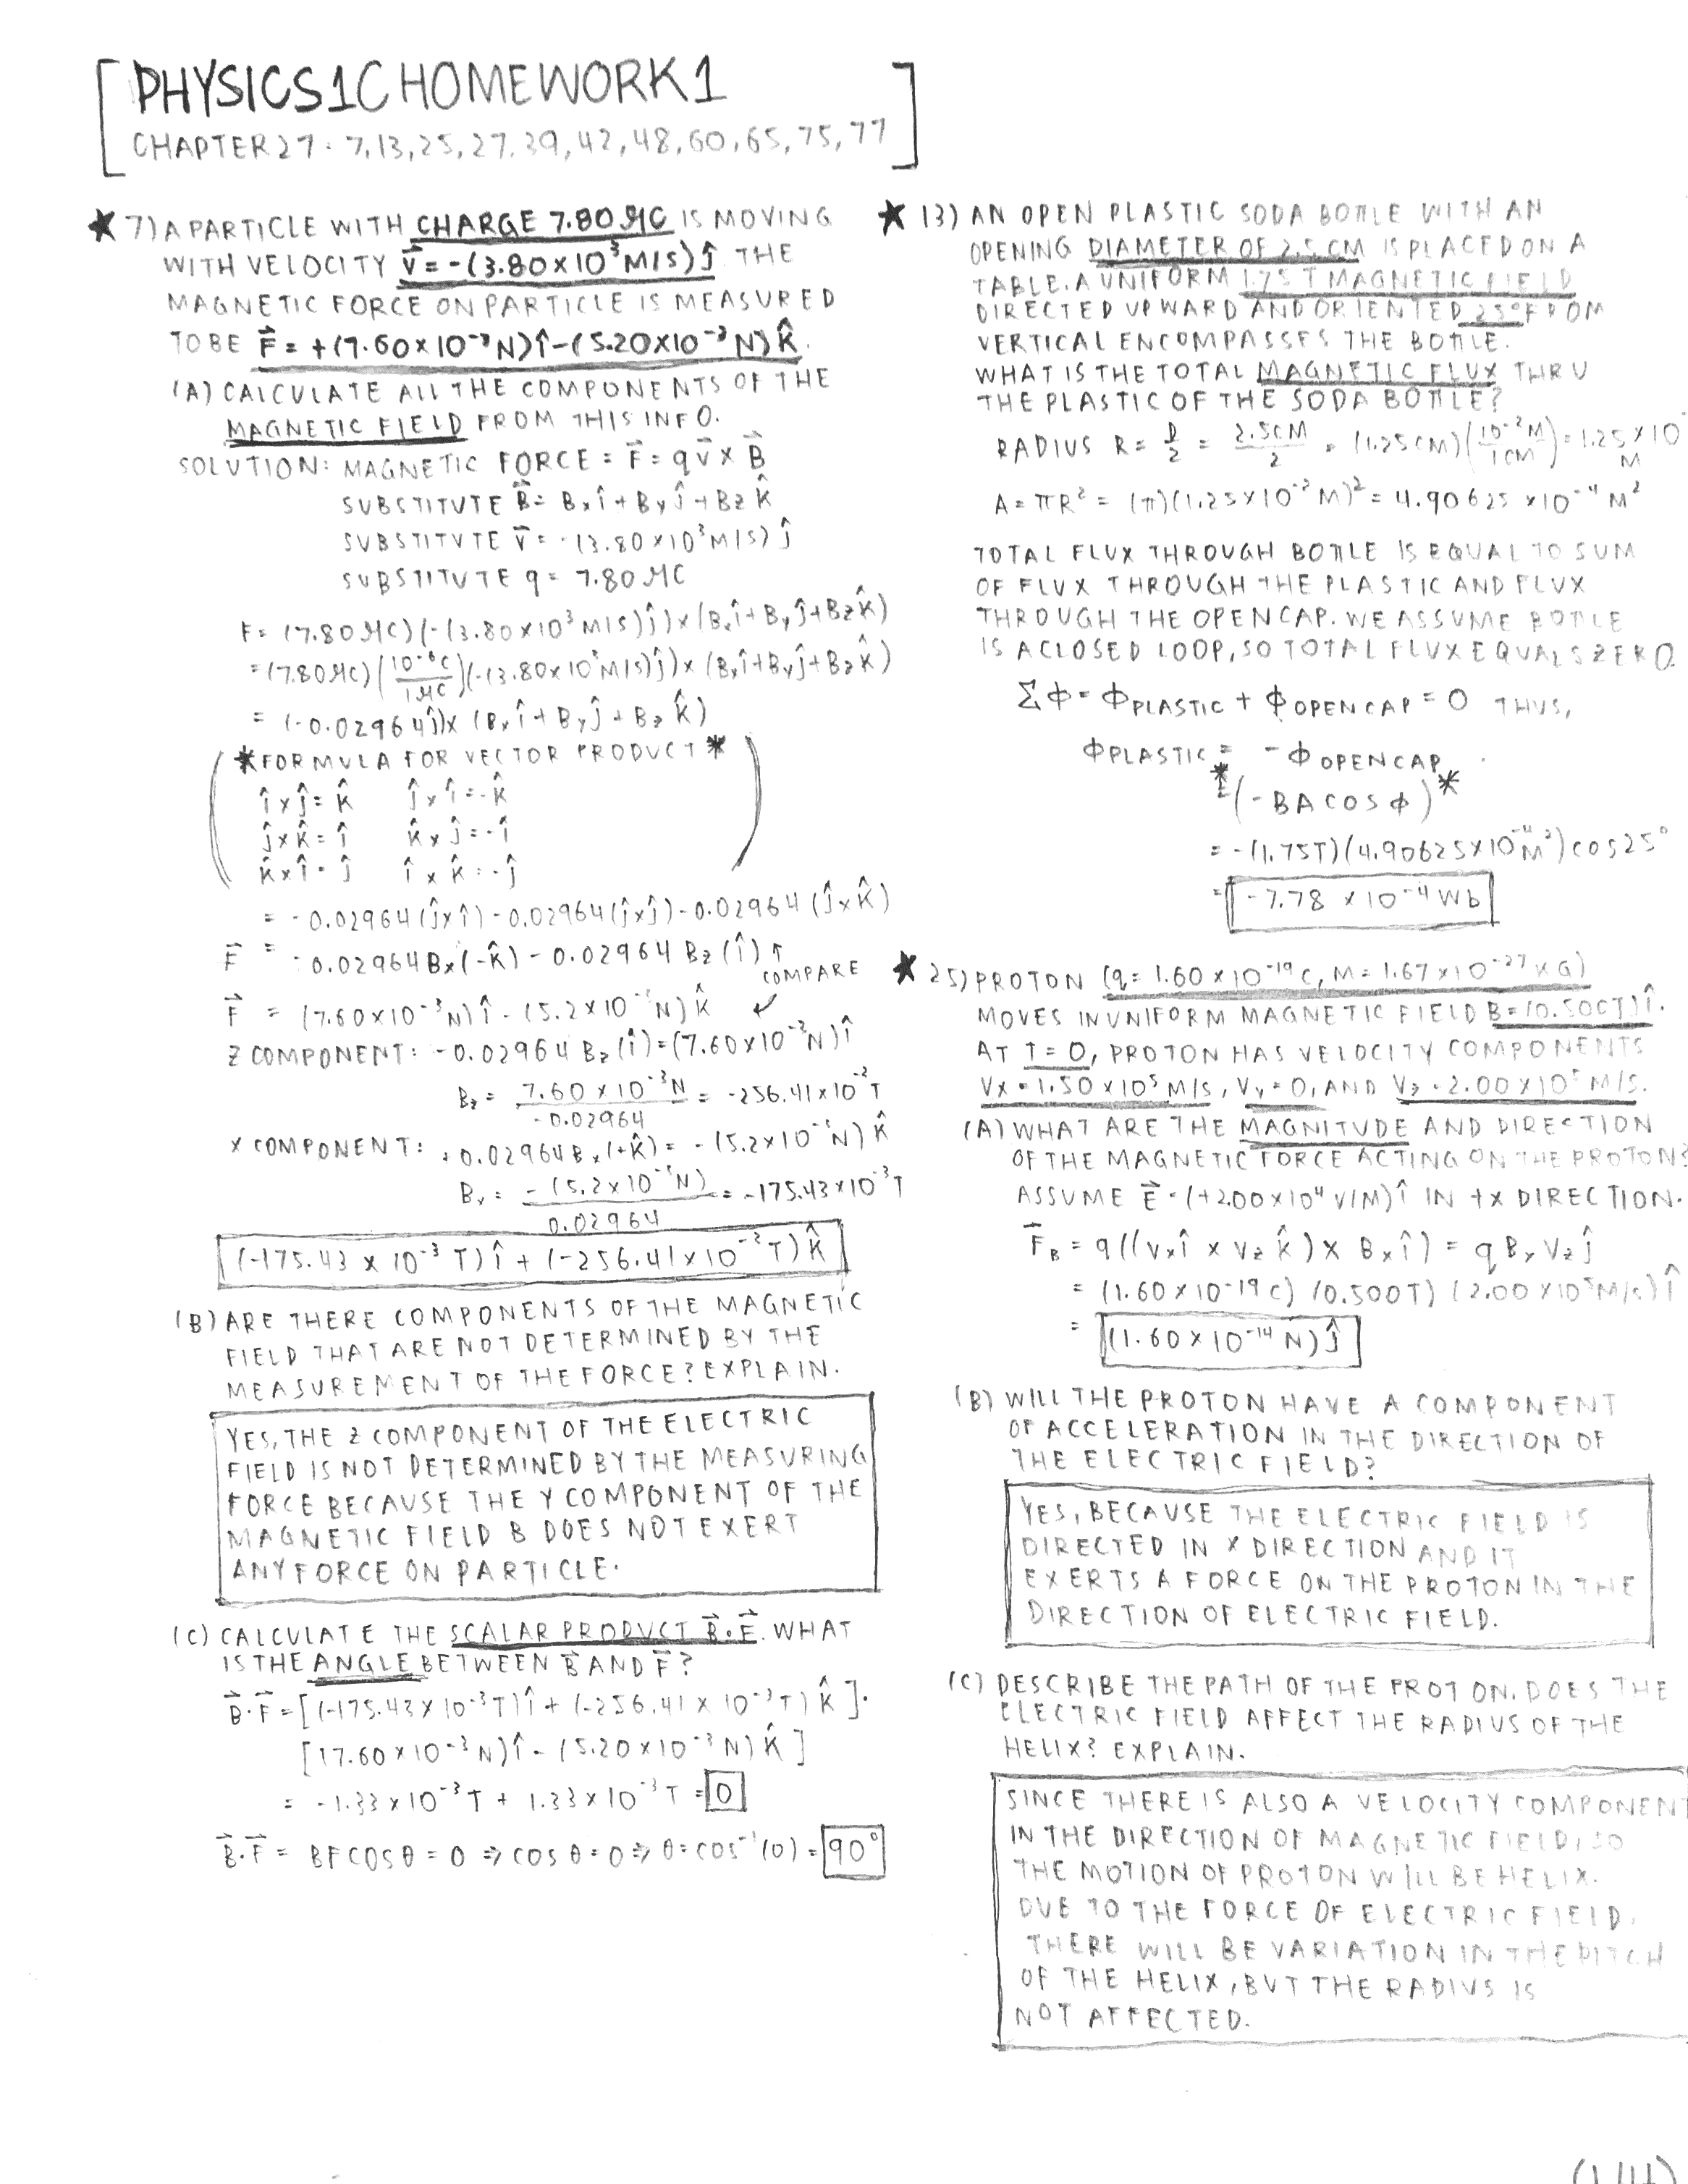 PHYSICS 1C HOMEWORK 1
CHAPTER 27: 7, 13, 25, 27, 39, 42, 48, 60, 65, 75, 77
★ 7) A PARTICLE WITH CHARGE 7.80 μC IS MOVING
WITH VELOCITY v⃗ = -(3.80 x 10³ M/S) ĵ THE
MAGNETIC FORCE ON PARTICLE IS MEASURED
TO BE F⃗ = +(7.60 x 10⁻³ N) î - (5.20 x 10⁻³ N) k̂.
(A) CALCULATE ALL THE COMPONENTS OF THE
MAGNETIC FIELD FROM THIS INFO.
SOLUTION: MAGNETIC FORCE = F⃗ = q v⃗ x B⃗
SUBSTITUTE B⃗ = Bx î + By ĵ + Bz k̂
SUBSTITUTE v⃗ = -(3.80 x 10³ M/S) ĵ
SUBSTITUTE q = 7.80 μC
F = (7.80 μC)(-(3.80 x 10³ M/S) ĵ) x (Bx î + By ĵ + Bz k̂)
= (7.80 μC)(10⁻⁶C / 1 μC)(-(3.80 x 10³ M/S) ĵ) x (Bx î + By ĵ + Bz k̂)
= (-0.02964 ĵ) x (Bx î + By ĵ + Bz k̂)
* FORMULA FOR VECTOR PRODUCT *
î x ĵ = k̂ ĵ x î = -k̂
ĵ x k̂ = î k̂ x ĵ = -î
k̂ x î = ĵ î x k̂ = -ĵ
= -0.02964 (ĵ x î) - 0.02964 (ĵ x ĵ) - 0.02964 (ĵ x k̂)
F⃗ = -0.02964 Bx (-k̂) - 0.02964 Bz (î) ↑
COMPARE
F⃗ = (7.60 x 10⁻³ N) î - (5.2 x 10⁻³ N) k̂ ↙
Z COMPONENT: -0.02964 Bz (î) = (7.60 x 10⁻³ N) î
Bz = 7.60 x 10⁻³ N / -0.02964 = -256.41 x 10⁻³ T
X COMPONENT: +0.02964 Bx (+k̂) = -(5.2 x 10⁻³ N) k̂
Bx = -(5.2 x 10⁻³ N) / 0.02964 = -175.43 x 10⁻³ T
(-175.43 x 10⁻³ T) î + (-256.41 x 10⁻³ T) k̂
(B) ARE THERE COMPONENTS OF THE MAGNETIC
FIELD THAT ARE NOT DETERMINED BY THE
MEASUREMENT OF THE FORCE? EXPLAIN.
YES, THE Z COMPONENT OF THE ELECTRIC
FIELD IS NOT DETERMINED BY THE MEASURING
FORCE BECAUSE THE Y COMPONENT OF THE
MAGNETIC FIELD B DOES NOT EXERT
ANY FORCE ON PARTICLE.
(C) CALCULATE THE SCALAR PRODUCT B⃗·F⃗. WHAT
IS THE ANGLE BETWEEN B⃗ AND F⃗?
B⃗·F⃗ = [(-175.43 x 10⁻³ T) î + (-256.41 x 10⁻³ T) k̂]·
[(7.60 x 10⁻³ N) î - (5.20 x 10⁻³ N) k̂]
= -1.33 x 10⁻³ T + 1.33 x 10⁻³ T = 0
B⃗·F⃗ = BF COS θ = 0 ⇒ COS θ = 0 ⇒ θ = COS⁻¹(0) = 90°
★ 13) AN OPEN PLASTIC SODA BOTTLE WITH AN
OPENING DIAMETER OF 2.5 CM IS PLACED ON A
TABLE. A UNIFORM 1.75 T MAGNETIC FIELD
DIRECTED UPWARD AND ORIENTED 25° FROM
VERTICAL ENCOMPASSES THE BOTTLE.
WHAT IS THE TOTAL MAGNETIC FLUX THRU
THE PLASTIC OF THE SODA BOTTLE?
RADIUS R = D/2 = 2.5CM / 2 = (1.25 CM)(10⁻²M / 1 CM) = 1.25 x 10
M
A = πR² = (π)(1.25 x 10⁻² M)² = 4.90625 x 10⁻⁴ M²
TOTAL FLUX THROUGH BOTTLE IS EQUAL TO SUM
OF FLUX THROUGH THE PLASTIC AND FLUX
THROUGH THE OPEN CAP. WE ASSUME BOTTLE
IS A CLOSED LOOP, SO TOTAL FLUX EQUALS ZERO.
Σϕ = ϕ PLASTIC + ϕ OPEN CAP = 0 THUS,
ϕ PLASTIC = -ϕ OPEN CAP
* = (-BA COS ϕ) *
= -(1.75T)(4.90625 x 10⁻⁴ M²) COS 25°
= -7.78 x 10⁻⁴ Wb
★ 25) PROTON (q = 1.60 x 10⁻¹⁹ C, M = 1.67 x 10⁻²⁷ KG)
MOVES IN UNIFORM MAGNETIC FIELD B = (0.500T) î.
AT T = 0, PROTON HAS VELOCITY COMPONENTS
Vx = 1.50 x 10⁵ M/S, Vy = 0, AND Vz = 2.00 x 10⁵ M/S.
(A) WHAT ARE THE MAGNITUDE AND DIRECTION
OF THE MAGNETIC FORCE ACTING ON THE PROTON?
ASSUME E⃗ = (+2.00 x 10⁴ V/M) î IN +X DIRECTION.
F⃗B = q((Vx î x Vz k̂) x Bx î) = q Bx Vz ĵ
= (1.60 x 10⁻¹⁹ C) (0.500T) (2.00 x 10⁵ M/S) î
= (1.60 x 10⁻¹⁴ N) ĵ
(B) WILL THE PROTON HAVE A COMPONENT
OF ACCELERATION IN THE DIRECTION OF
THE ELECTRIC FIELD?
YES, BECAUSE THE ELECTRIC FIELD IS
DIRECTED IN X DIRECTION AND IT
EXERTS A FORCE ON THE PROTON IN THE
DIRECTION OF ELECTRIC FIELD.
(C) DESCRIBE THE PATH OF THE PROTON. DOES THE
ELECTRIC FIELD AFFECT THE RADIUS OF THE
HELIX? EXPLAIN.
SINCE THERE IS ALSO A VELOCITY COMPONENT
IN THE DIRECTION OF MAGNETIC FIELD, SO
THE MOTION OF PROTON WILL BE HELIX.
DUE TO THE FORCE OF ELECTRIC FIELD,
THERE WILL BE VARIATION IN THE PITCH
OF THE HELIX, BUT THE RADIUS IS
NOT AFFECTED.